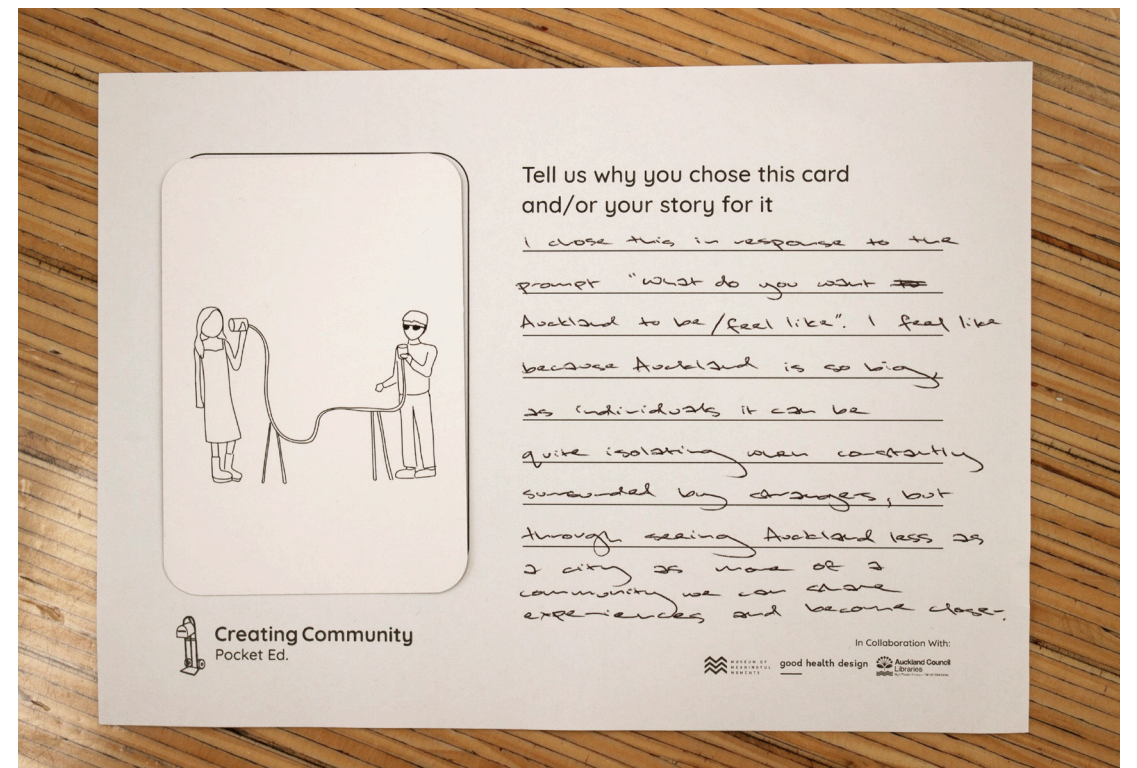 Tell us why you chose this card
and/or your story for it
I chose this in response to the
prompt "what do you want
Auckland to be/feel like". I feel like
because Auckland is so big,
as individuals it can be
quite isolating when constantly
surrounded by strangers, but
through seeing Auckland less as
a city as more of a
community we can share
experiences and become closer.
Creating Community
Pocket Ed.
In Collaboration With:
MUSEUM OF
MEANINGFUL
MOMENTS
good health design
Auckland Council
Libraries